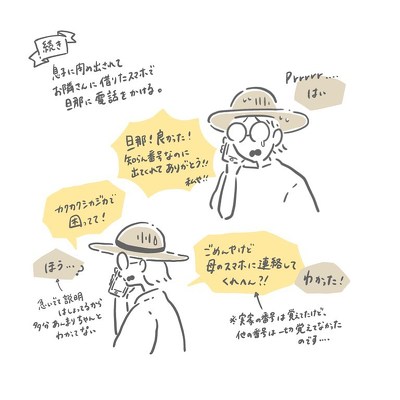 続き
息子に閉め出されて
お隣さんに借りたスマホで
旦那に電話をかける。
Prrrrr....
はい
旦那!良かった!
知らん番号なのに
出てくれてありがとう!!
私や!!
カクカクシカジカで
困ってて!
ほう…。
急いで説明
はしょってるから
多分あんまりちゃんと
わかってない
ごめんやけど
母のスマホに連絡して
くれへん?!
わかった!
※実家の番号は覚えてたけど、
他の番号は一切覚えてなかった
のです…。